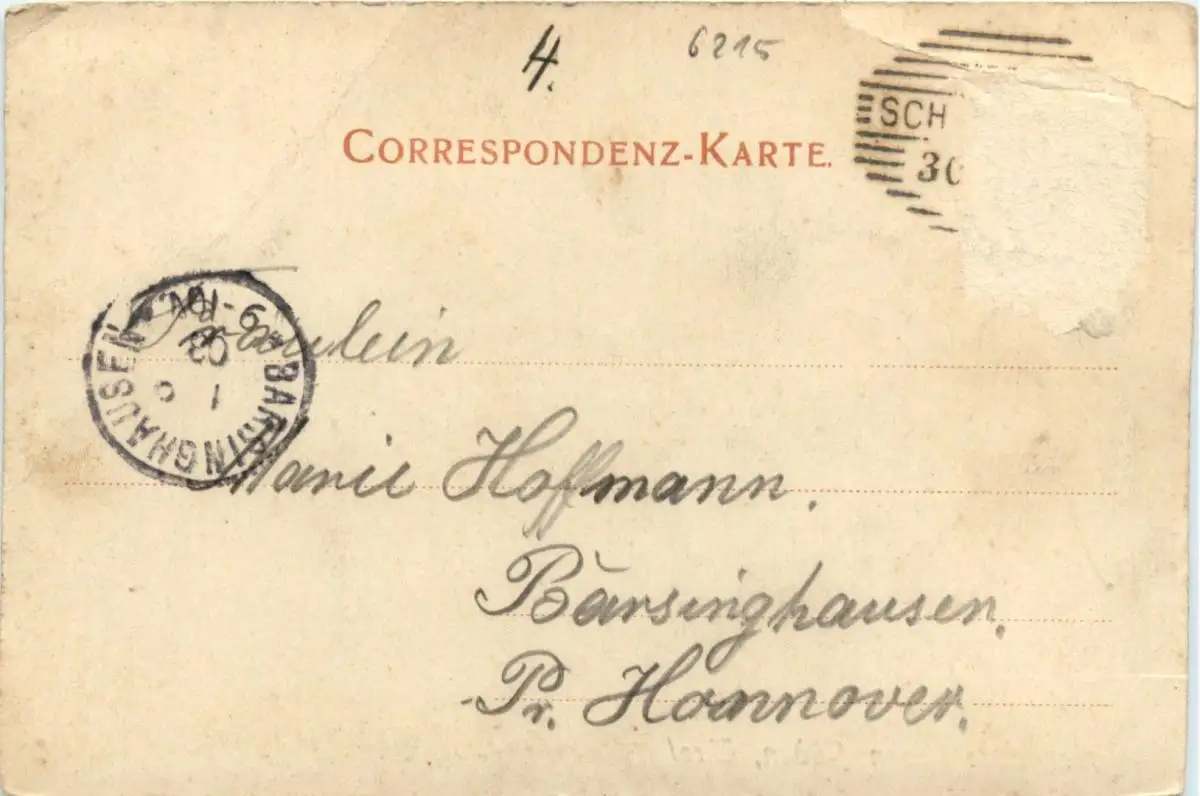 4.
6215
CORRESPONDENZ-KARTE.
SCH
30
Fräulein
BARSINGHAUSEN
9-10V.
03
Marie Hoffmann.
Barsinghausen.
Pr. Hannover.